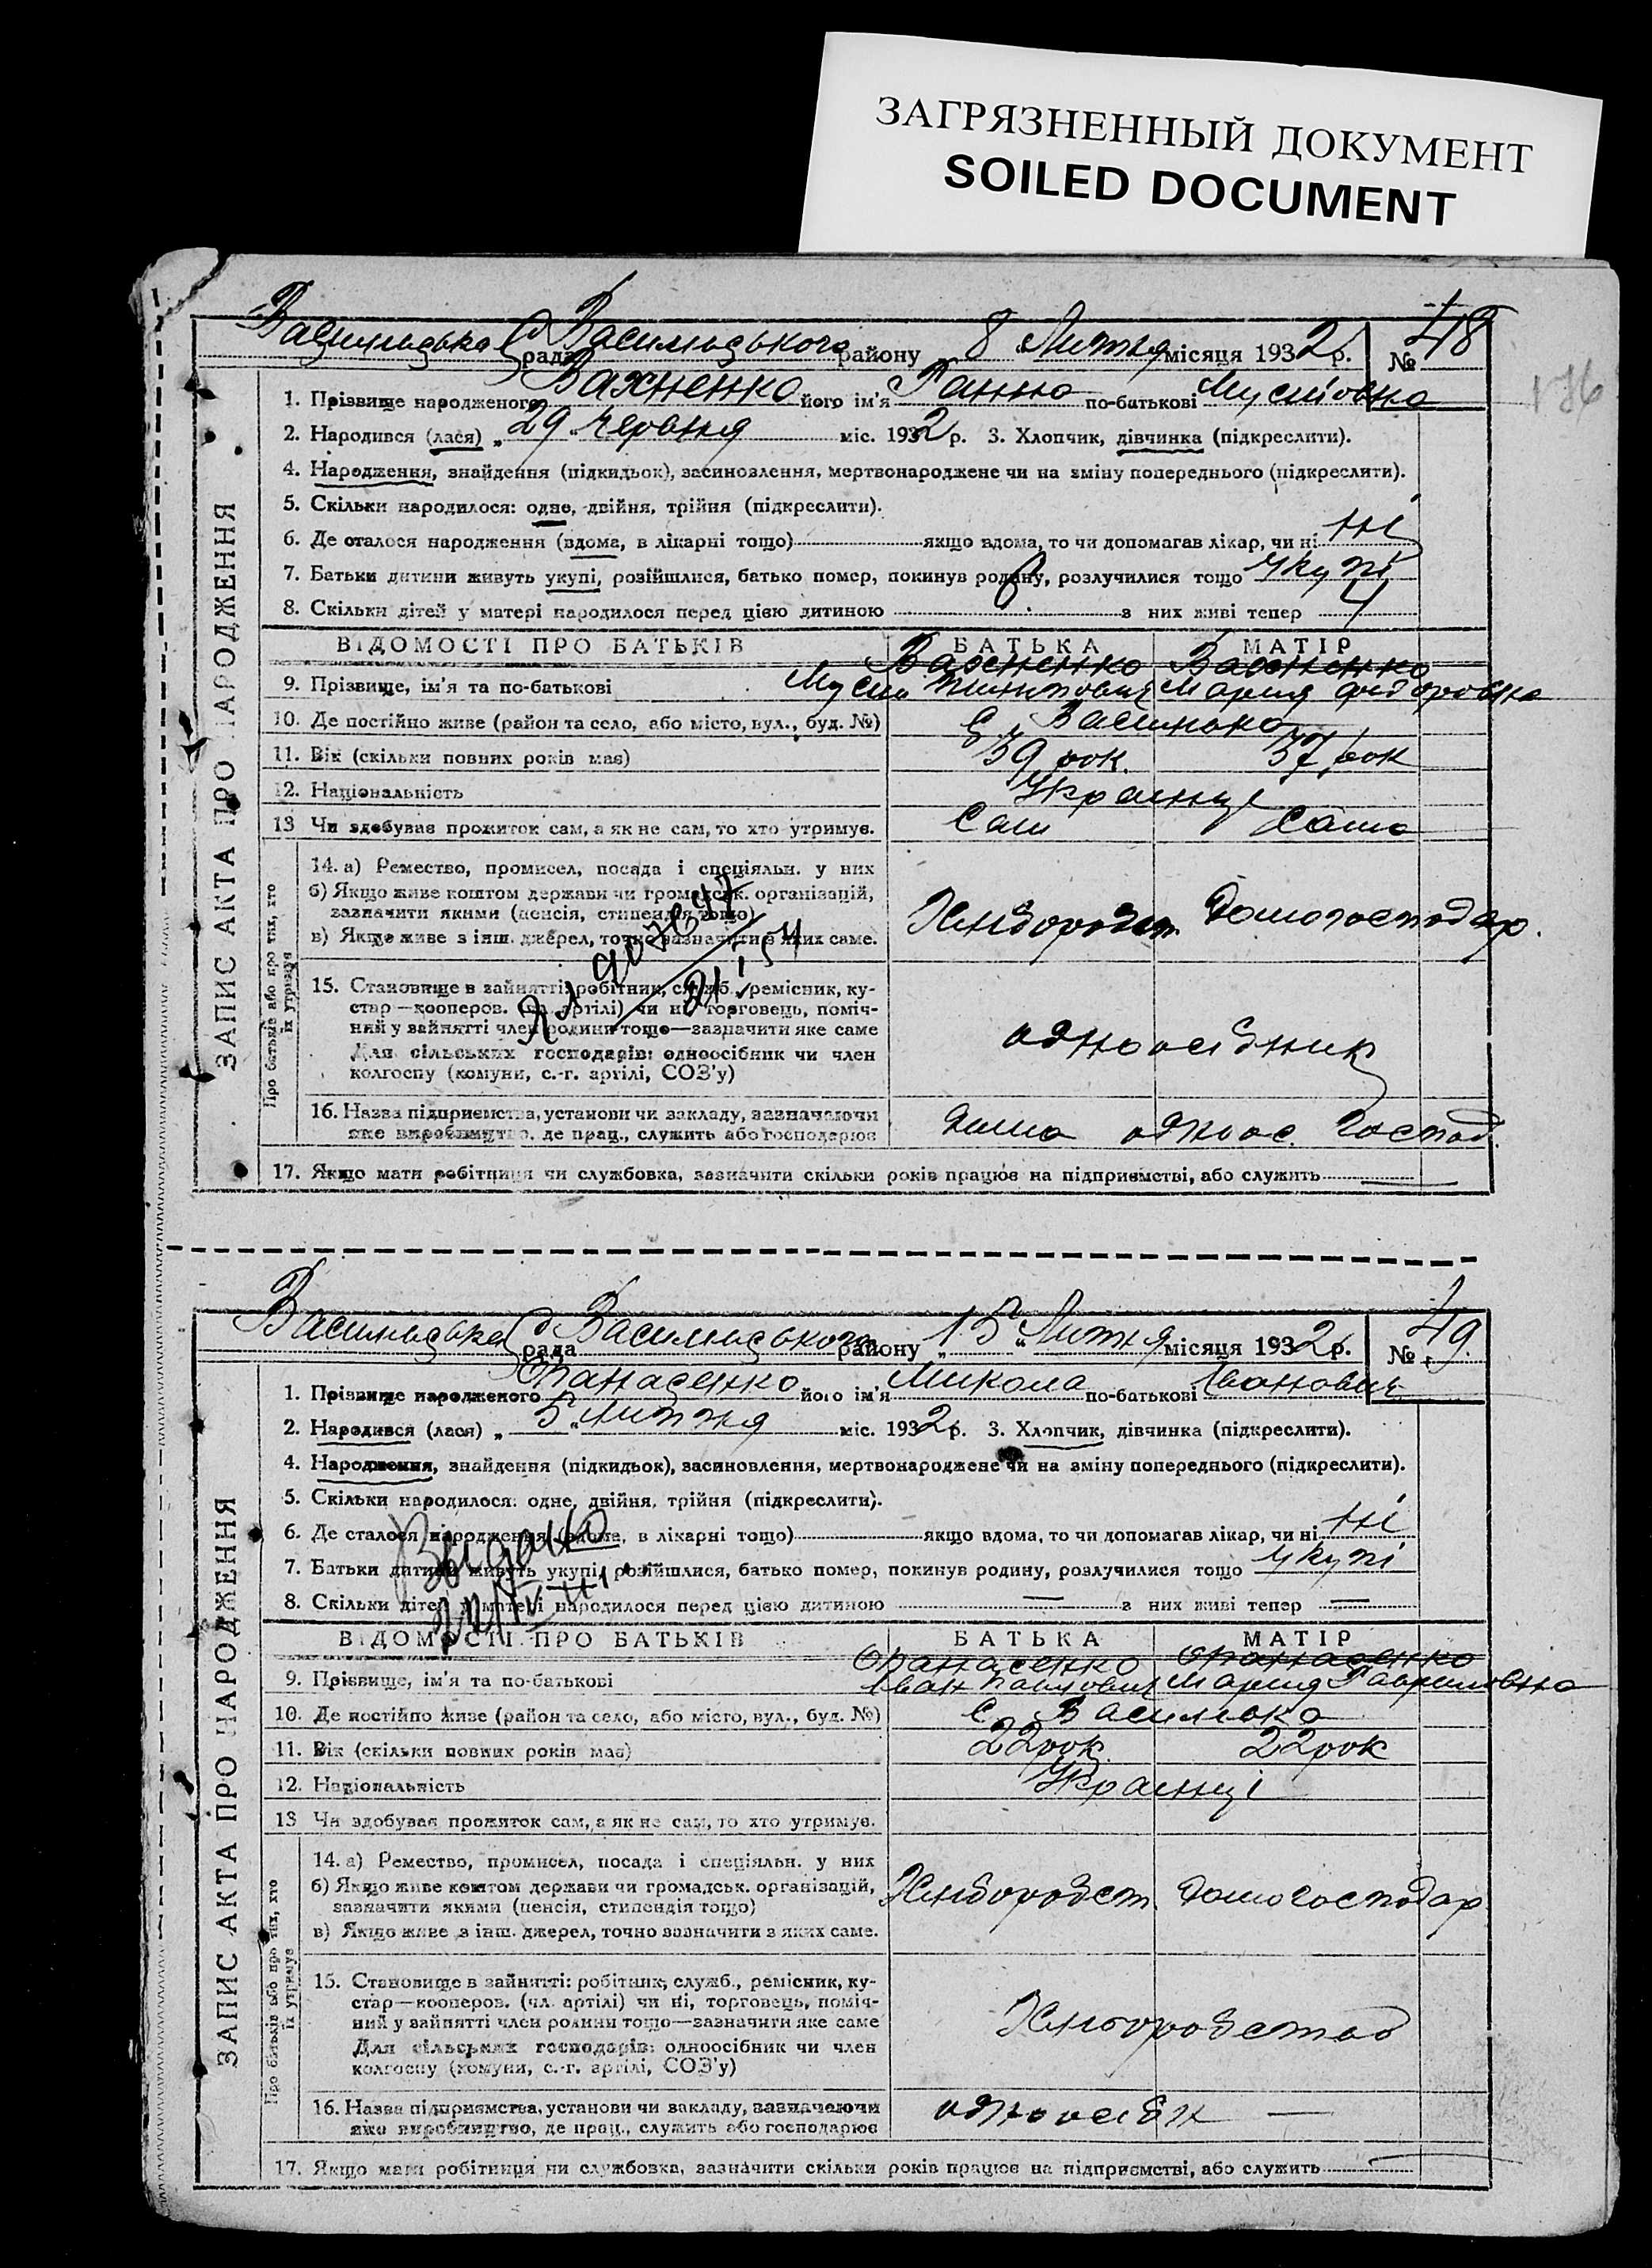 ЗАГРЯЗНЕННЫЙ ДОКУМЕНТ
SOILED DOCUMENT
176
Васильцька С рада Васильцького району „8" Липня місяця 1932 р. № 48
ЗАПИС АКТА ПРО НАРОДЖЕННЯ
1. Прізвище народженого Вахненко його ім'я Ганна по-батькові Мусіївна
2. Народився (лася) „29" Червня міс. 1932 р. 3. Хлопчик, дівчинка (підкреслити).
4. Народження, знайдення (підкидьок), засиновлення, мертвонароджене чи на зміну попереднього (підкреслити).
5. Скільки народилося: одне, двійня, трійня (підкреслити).
6. Де сталося народження (вдома, в лікарні тощо) якщо вдома, то чи допомагав лікар, чи ні ні
7. Батьки дитини живуть укупі, розійшлися, батько помер, покинув родину, розлучилися тощо укупі
8. Скільки дітей у матері народилося перед цією дитиною 6 з них живі тепер 4
ВІДОМОСТІ ПРО БАТЬКІВ БАТЬКА МАТІР
Вахненко Вахненко
9. Прізвище, ім'я та по-батькові Мусій Пилипович Мария Федоровна
10. Де постійно живе (район та село, або місто, вул., буд. №) С Василько
11. Вік (скільки повних років має) 39 рок. 37 рок
12. Національність Українці
13 Чи здобуває прожиток сам, а як не сам, то хто утримує. Сам Сама
Про батьків або про тих, хто їх утримує
14. а) Ремество, промисел, посада і спеціяльн. у них
б) Якщо живе коштом держави чи громадськ. організацій,
зазначити якими (пенсія, стипендія тощо)
в) Якщо живе з інш. джерел, точно зазначити з яких саме.
Хліборобст. Домогосподар.
15. Становище в зайнятті: робітник, служб., ремісник, ку-
стар—кооперов. (чл. артілі) чи ні, торговець, поміч-
ний у зайнятті член родини тощо—зазначити яке саме
Для сільських господарів: одноосібник чи член
колгоспу (комуни, с.-г. артілі, СОЗ'у)
одноосібник
16. Назва підприємства, установи чи закладу, зазначаючи
яке виробництво, де прац., служить або господарює
дома одноос. господ.
17. Якщо мати робітниця чи службовка, зазначити скільки років працює на підприємстві, або служить —
Васильцька С рада Васильцького району „15" Липня місяця 1932 р. № 49.
ЗАПИС АКТА ПРО НАРОДЖЕННЯ
1. Прізвище народженого Опанасенко його ім'я Микола по-батькові Іванович
2. Народився (лася) „5" Липня міс. 1932 р. 3. Хлопчик, дівчинка (підкреслити).
4. Народження, знайдення (підкидьок), засиновлення, мертвонароджене чи на зміну попереднього (підкреслити).
5. Скільки народилося: одне, двійня, трійня (підкреслити).
6. Де сталося народження (вдома, в лікарні тощо) якщо вдома, то чи допомагав лікар, чи ні ні
7. Батьки дитини живуть укупі, розійшлися, батько помер, покинув родину, розлучилися тощо укупі
Выдано
8. Скільки дітей у матері народилося перед цією дитиною — з них живі тепер —
ВІДОМОСТІ ПРО БАТЬКІВ БАТЬКА МАТІР
Опанасенко Опанасенко
9. Прізвище, ім'я та по-батькові Іван Павлович Мария Гавриловна
10. Де постійно живе (район та село, або місто, вул., буд. №) С Василько
11. Вік (скільки повних років має) 22 рок. 22 рок
12. Національність Українці
13 Чи здобуває прожиток сам, а як не сам, то хто утримує.
Про батьків або про тих, хто їх утримує
14. а) Ремество, промисел, посада і спеціяльн. у них
б) Якщо живе коштом держави чи громадськ. організацій,
зазначити якими (пенсія, стипендія тощо)
в) Якщо живе з інш. джерел, точно зазначити з яких саме.
Хліборобст. Домогосподар
15. Становище в зайнятті: робітник, служб., ремісник, ку-
стар—кооперов. (чл. артілі) чи ні, торговець, поміч-
ний у зайнятті член родини тощо—зазначити яке саме
Для сільських господарів: одноосібник чи член
колгоспу (комуни, с.-г. артілі, СОЗ'у)
Хліборобство
16. Назва підприємства, установи чи закладу, зазначаючи
яке виробництво, де прац., служить або господарює
одноосібн —
17. Якщо мати робітниця чи службовка, зазначити скільки років працює на підприємстві, або служить —